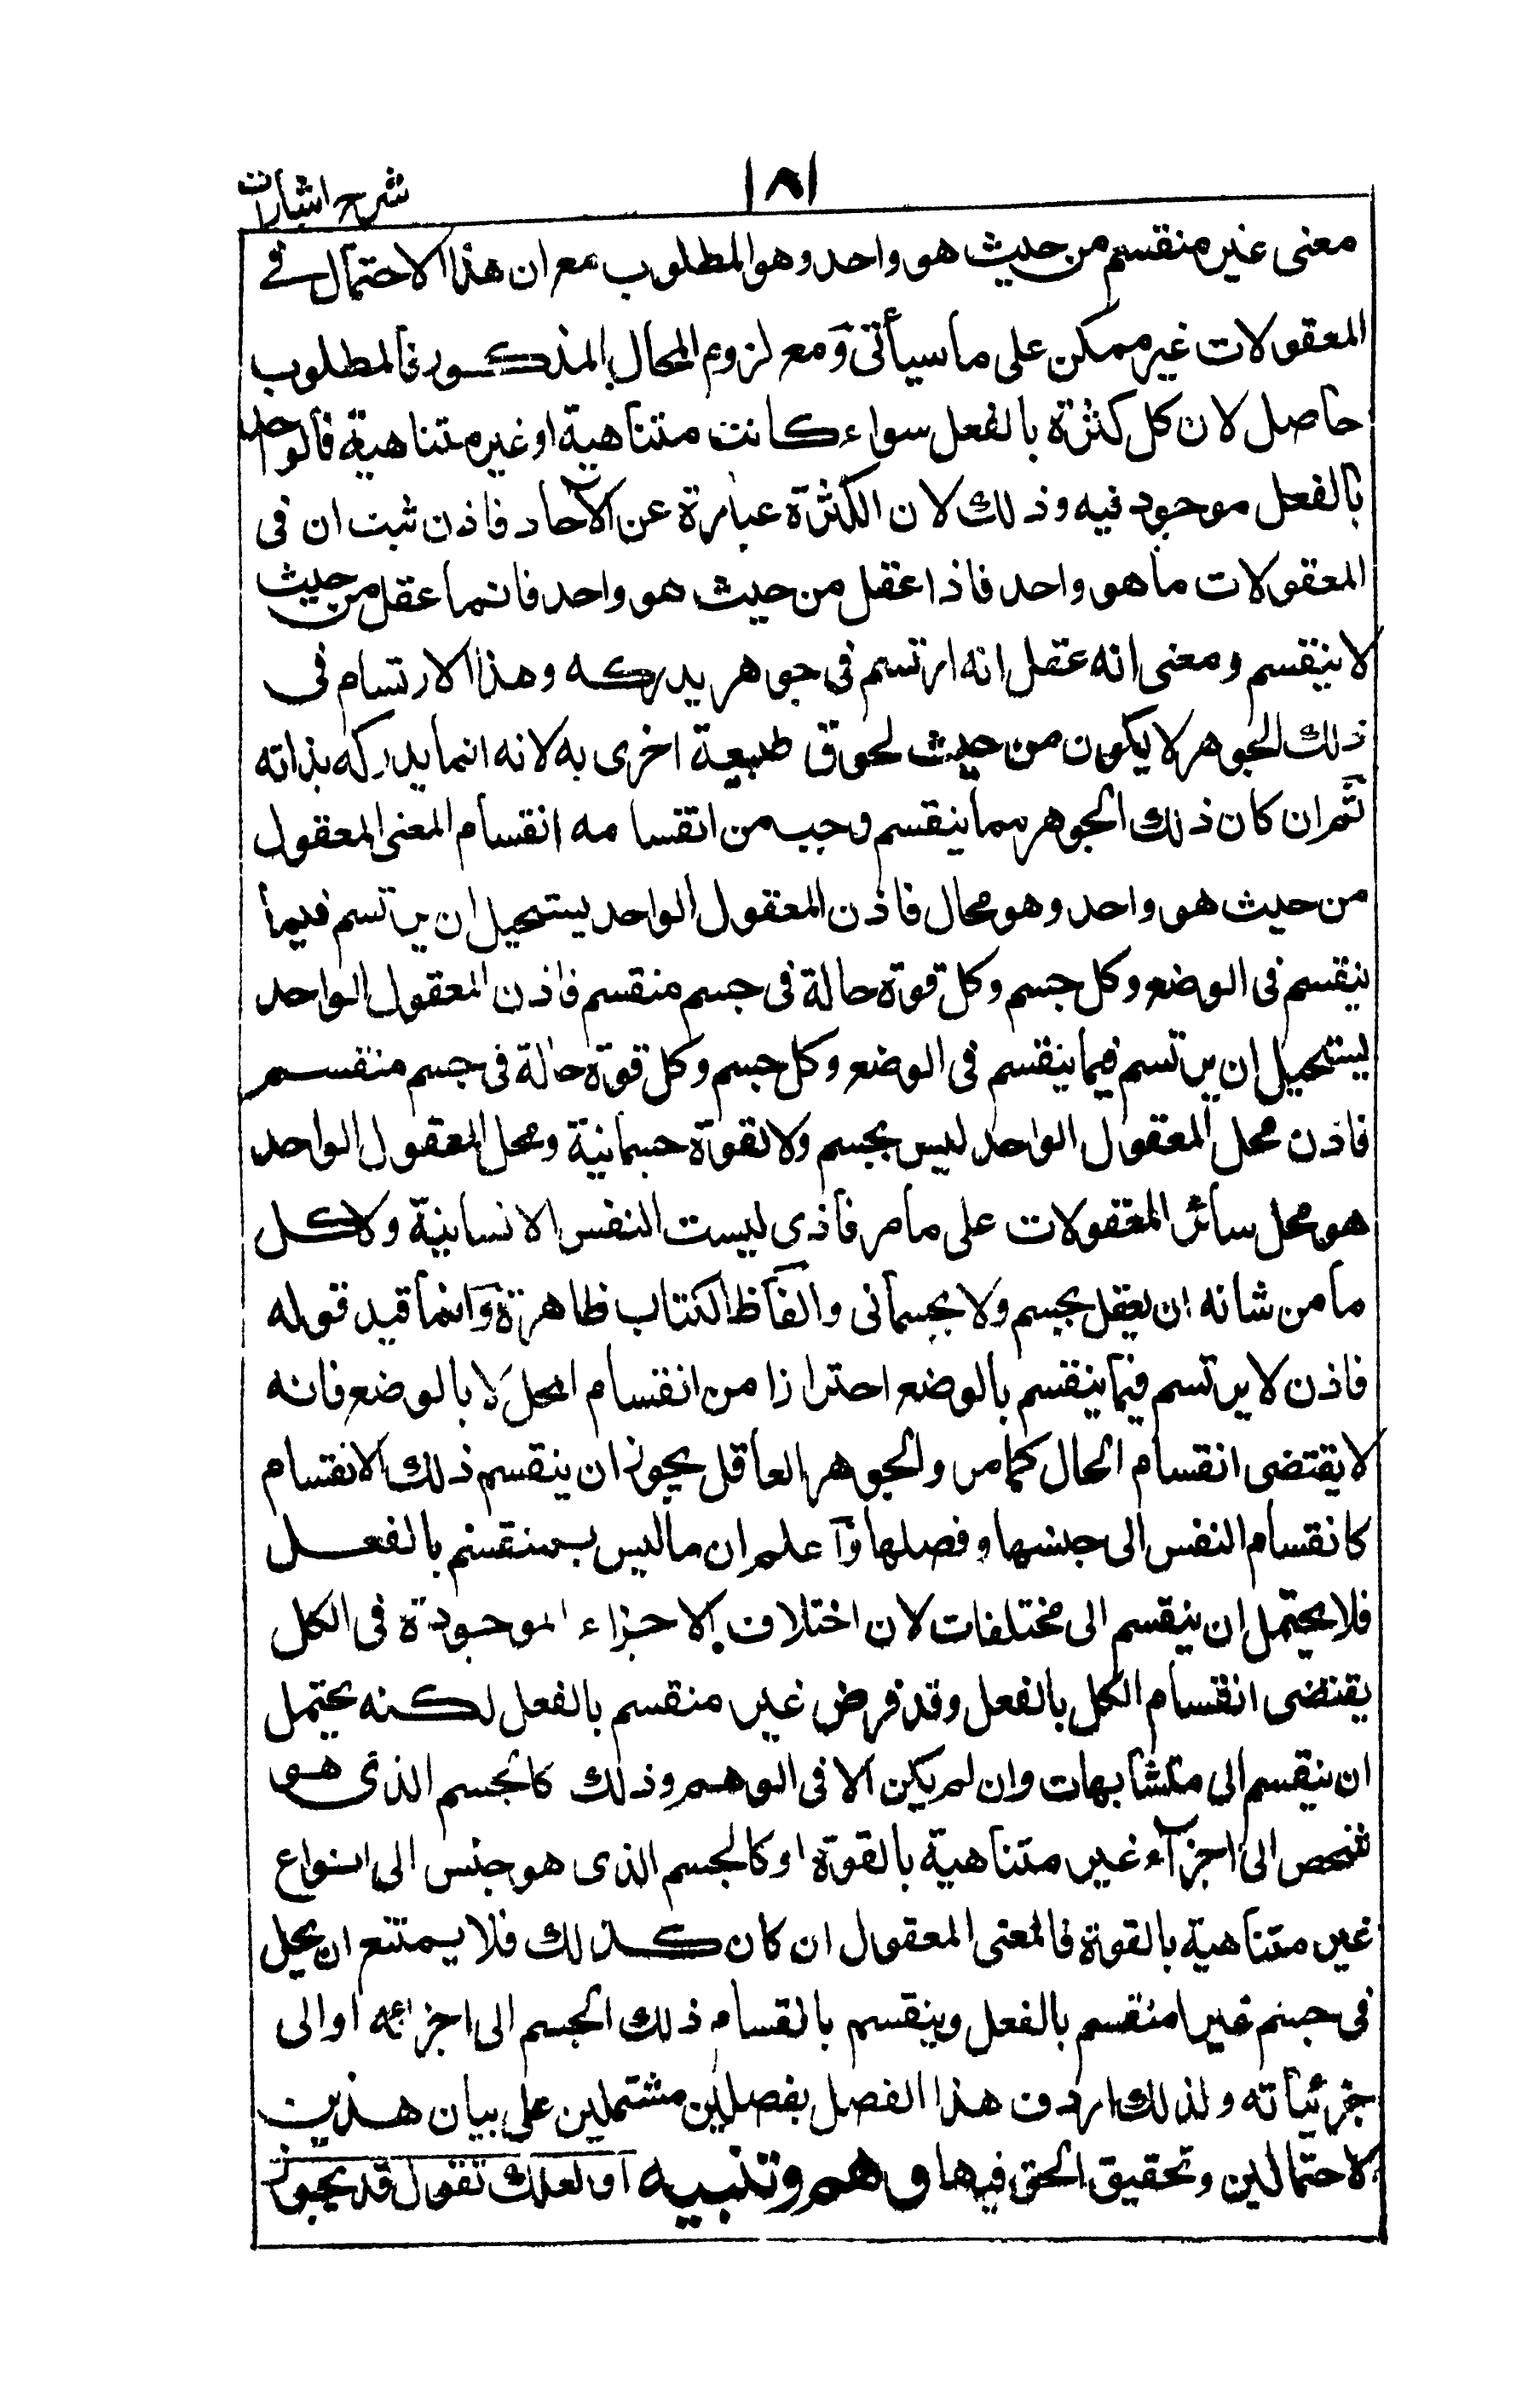 ١٨١
شرح اشارات
معنى غير منقسم من حيث هو واحد وهو المطلوب مع ان هذا الاحتمال في
المعقولات غير ممكن على ما سيأتى ومع لزوم المحال المذكور فالمطلوب
حاصل لان كل كثرة بالفعل سواء كانت متناهية او غير متناهية فالواحد
بالفعل موجود فيه وذلك لان الكثرة عبارة عن الآحاد فاذن ثبت ان فى
المعقولات ما هو واحد فاذا عقل من حيث هو واحد فانما عقل من حيث
لا ينقسم ومعنى انه عقل انه ارتسم فى جوهر يدركه وهذا الارتسام فى
ذلك الجوهر لا يكون من حيث لحوق طبيعة اخرى به لانه انما يدركه بذاته
ثم ان كان ذلك الجوهر مما ينقسم وجب من انقسامه انقسام المعنى المعقول
من حيث هو واحد وهو محال فاذن المعقول الواحد يستحيل ان يرتسم فيما
ينقسم فى الوضع وكل جسم وكل قوة حالة فى جسم منقسم فاذن المعقول الواحد
يستحيل ان يرتسم فيما ينقسم فى الوضع وكل جسم وكل قوة حالة فى جسم منقسم
فاذن محل المعقول الواحد ليس بجسم ولا بقوة جسمانية ومحل المعقول الواحد
هو محل سائر المعقولات على ما مر فاذى ليست النفس الانسانية ولا كل
ما من شانه ان يعقل بجسم ولا بجسمانى والفاظ الكتاب ظاهرة وانما قيد قوله
فاذن لا يرتسم فيما ينقسم بالوضع احترازا من انقسام المحل لا بالوضع فانه
لا يقتضى انقسام الحال كما مر والجوهر العاقل يجوز ان ينقسم ذلك الانقسام
كانقسام النفس الى جنسها وفصلها وآعلم ان ما ليس بمنقسم بالفعل
فلا يحتمل ان ينقسم الى مختلفات لان اختلاف الاجزاء الموجودة فى الكل
يقتضى انقسام الكل بالفعل وقد فرض غير منقسم بالفعل لكنه يحتمل
ان ينقسم الى متشابهات وان لم يكن الا فى الوهم وذلك كالجسم الذى هو
شخص الى اجزآء غير متناهية بالقوة او كالجسم الذى هو جنس الى انواع
غير متناهية بالقوة فالمعنى المعقول ان كان كذلك فلا يمتنع ان يحل
فى جسم غير منقسم بالفعل وينقسم بانقسام ذلك الجسم الى اجزائه او الى
جزئياته ولذلك اردف هذا الفصل بفصلين مشتملين على بيان هذين
الاحتمالين وتحقيق الحق فيها وهم وتنبيه او لعلك تقول قد يجوز